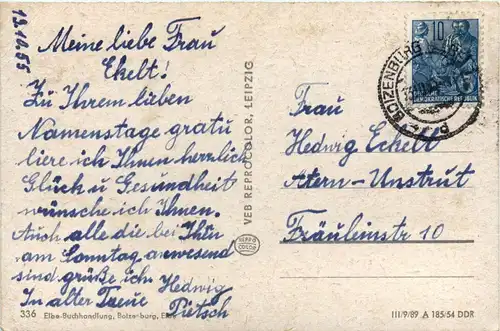 13.10.55
Meine liebe Frau
Ekelt!
Zu Ihrem lieben
Namenstage gratu
liere ich Ihnen herzlich
Glück u Gesundheit
wünsche ich Ihnen.
Auch alle die bei Ihnen
am Sonntag anwesend
sind grüße ich Hedwig
In alter Treue Pietsch
336 Elbe-Buchhandlung, Boizenburg, Elbe
VEB REPROCOLOR, LEIPZIG
REPRO
COLOR
10
DEUTSCHE
DEMOKRATISCHE REPUBLIK
BOIZENBURG
Frau
Hedwig Eckelt
Artern-Unstrut
Fräuleinstr 10
III/9/89 A 185/54 DDR